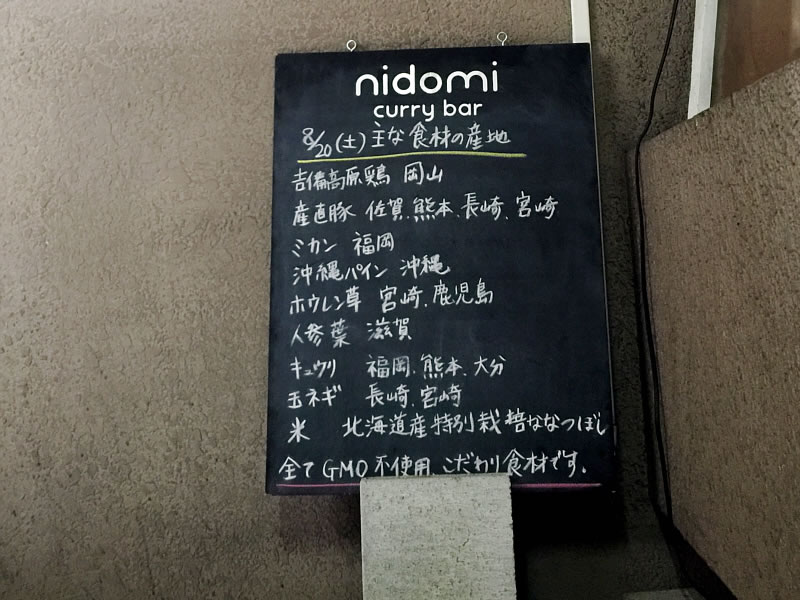 nidomi
curry bar
8/20(土)主な食材の産地
吉備高原鶏 岡山
産直豚 佐賀、熊本、長崎、宮崎
ミカン 福岡
沖縄パイン 沖縄
ホウレン草 宮崎、鹿児島
人参葉 滋賀
キュウリ 福岡、熊本、大分
玉ネギ 長崎、宮崎
米 北海道産特別栽培ななつぼし
全てGMO不使用、こだわり食材です。